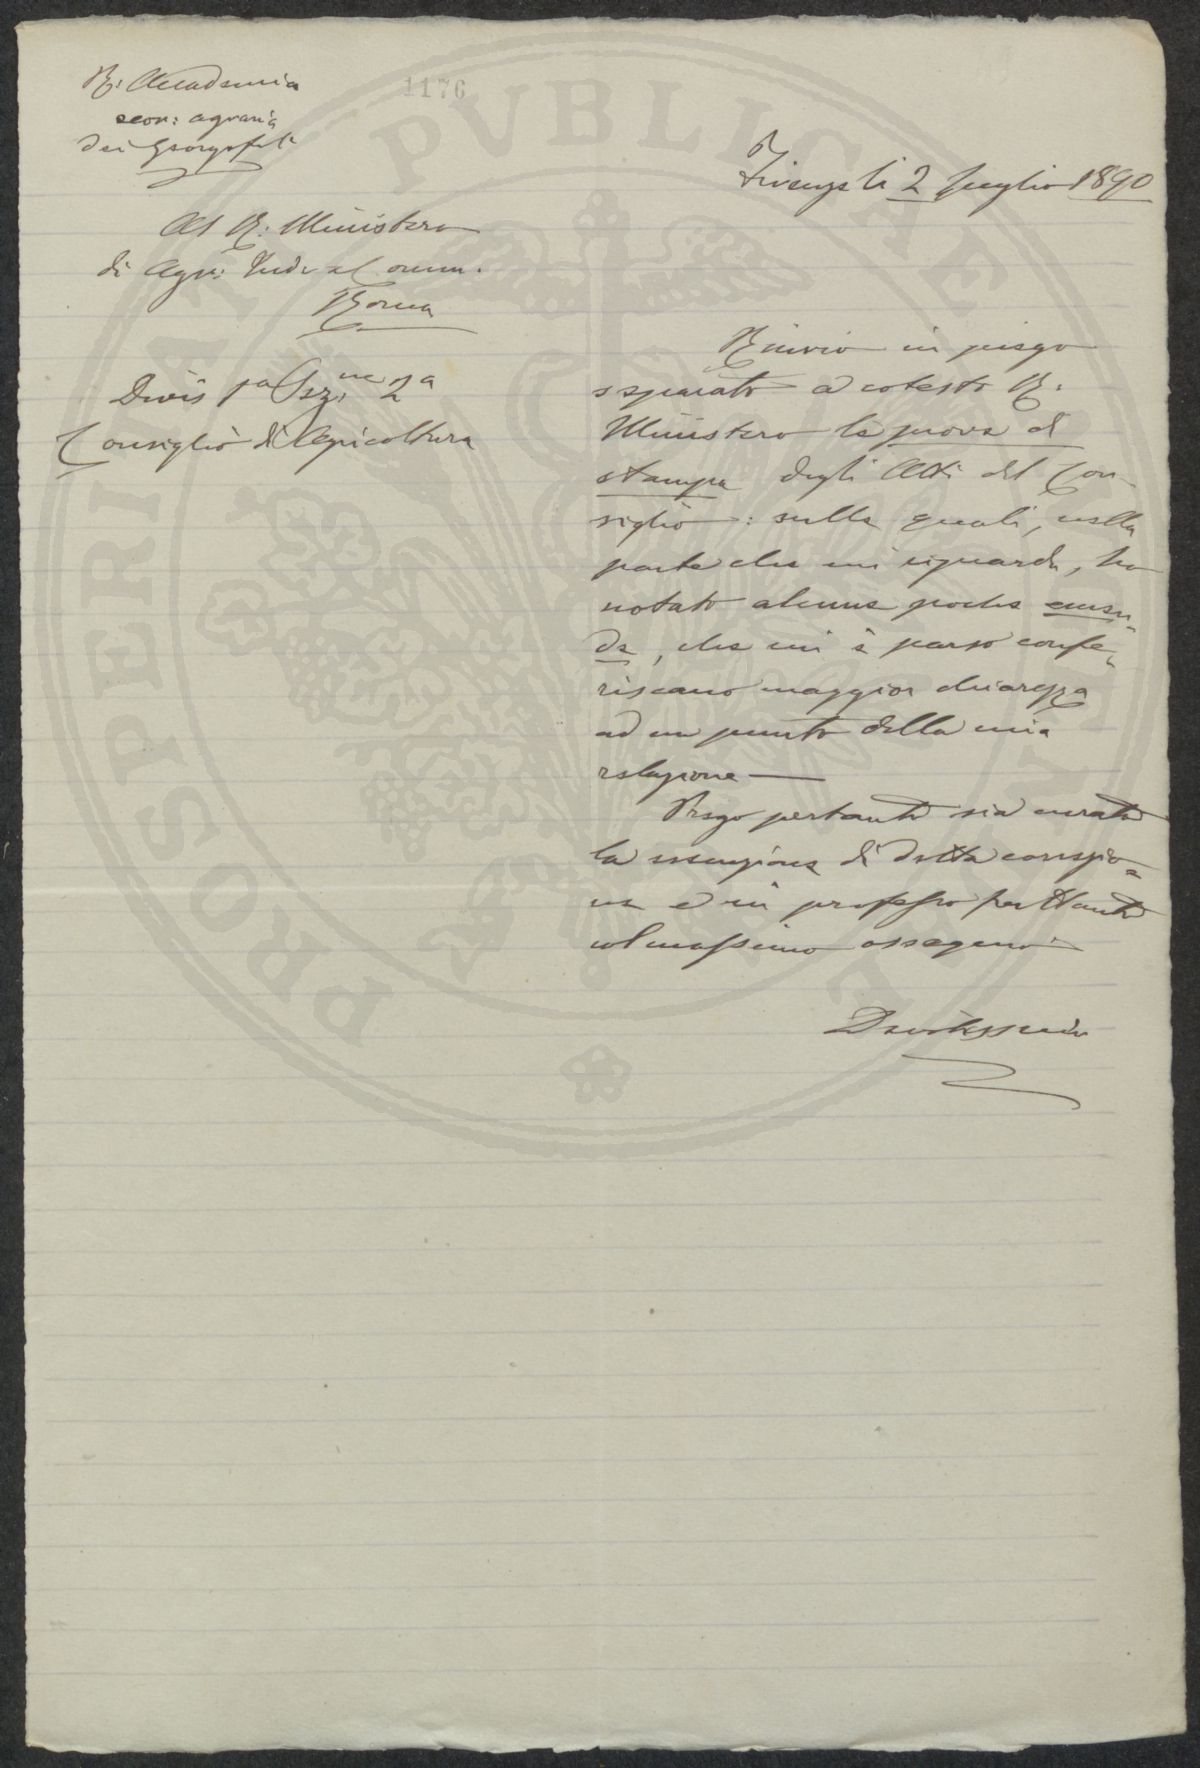 1176
R: Accademia
econ: agraria
dei Georgofili
Firenze li 2 luglio 1890
Al R: Ministero
di Agr: Ind: e Comm.
Roma
Divis 1a Sez.ne 2a
Consiglio di Agricoltura
Rinvio in piego
separato a cotesto R:
Ministero le prove di
stampa degli Atti del Con-
siglio: sulle quali, nella
parte che mi riguarda, ho
notato alcune poche emen-
de, che mi è parso confe-
riscano maggior chiarezza
ad un punto della mia
relazione —
Prego pertanto sia curata
la di detta correzio-
ne e mi professo frattanto
col massimo ossequio
PROSPERITATI PVBLICAE